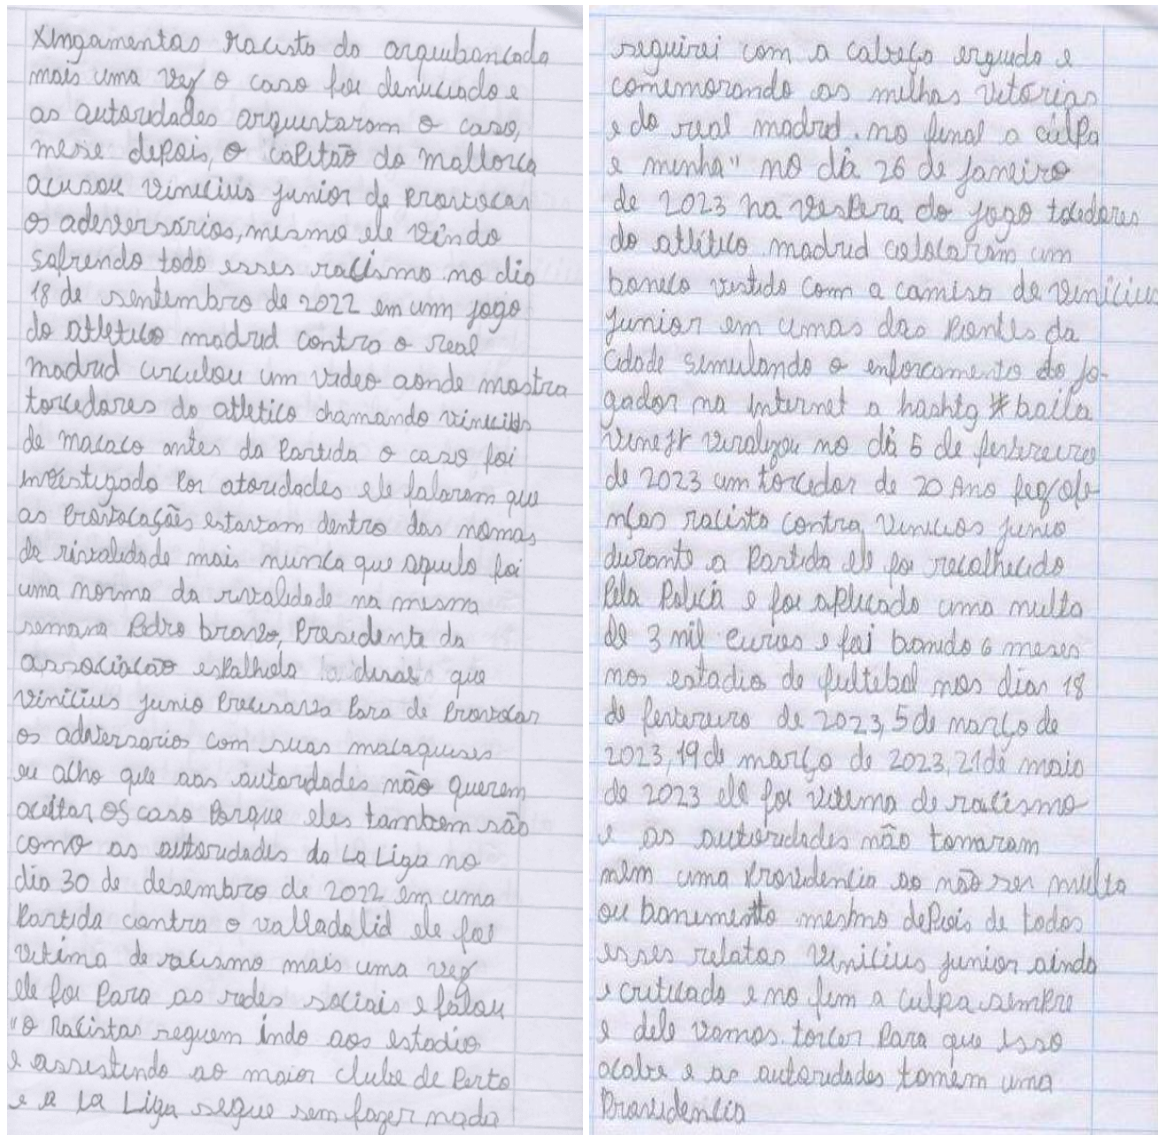 xingamentos racista da arquibancada
mais uma vez o caso foi denuciado e
as autoridades arquivtaram o caso,
mese depois, o capitão do mallorca
acusou vinicius junior de provocar
os adeversários, mesmo ele vindo
sofrendo todo esses racismo no dia
18 de sentembro de 2022 em um jogo
do atletico madrid contra o real
madrid circulou um video aonde mostra
torcedores do atletico chamando vinicius
de macaco antes da partida o caso foi
investigado por atoridades ele falaram que
as provocações estavam dentro das nomas
da rivalidade mais nunca que aquilo foi
uma norma da rivalidade na mesma
semana Pedro bravo, presidente da
associacão espalhola disse que
vinicius junio precisava para de provocar
os adversarios com suas macaquises
eu acho que aas autoridades não querem
aceitar os caso porque eles tambem são
como as autoridades da La Liga no
dia 30 de desembro de 2022 em uma
partida contra o valladolid ele foi
vitima de racismo mais uma vez
ele foi para as redes sociais e falou
"o Racistas seguem indo aos estadio
e assistindo ao maior clube de Perto
e a La Liga segue sem fazer nada
seguirei com a cabeça erguida e
comemorando as milhas vitorias
e do real madrid. no final a culpa
e minha" no dia 26 de janeiro
de 2023 na vespera do jogo tocedores
do atlético madrid colocaram um
boneco vestido com a camisa de vinicius
junior em umas das pontes da
cidade simulando o enforcamento do jo-
gador na internet a hashtg #baila
vinejr viralizou no dia 5 de fevereiro
de 2023 um torcedor de 20 Ano fez ofe
nças racista contra vinicios junio
durante a partida ele foi recolhecido
pela policia e foi aplicado uma multa
de 3 mil euros e foi banido 6 meses
nos estadio de fultebol nos dias 18
de fevereiro de 2023, 5 de março de
2023, 19 de março de 2023, 21 de maio
de 2023 ele foi vitima de racismo
e as autoridades não tomaram
nem uma providencia ao não ser multa
ou banimento mesmo depois de todos
esses relatos vinicius junior ainda
e criticado e no fim a culpa sempre
e dele vamos torcer para que isso
acabe e as autoridades tomem uma
providencia